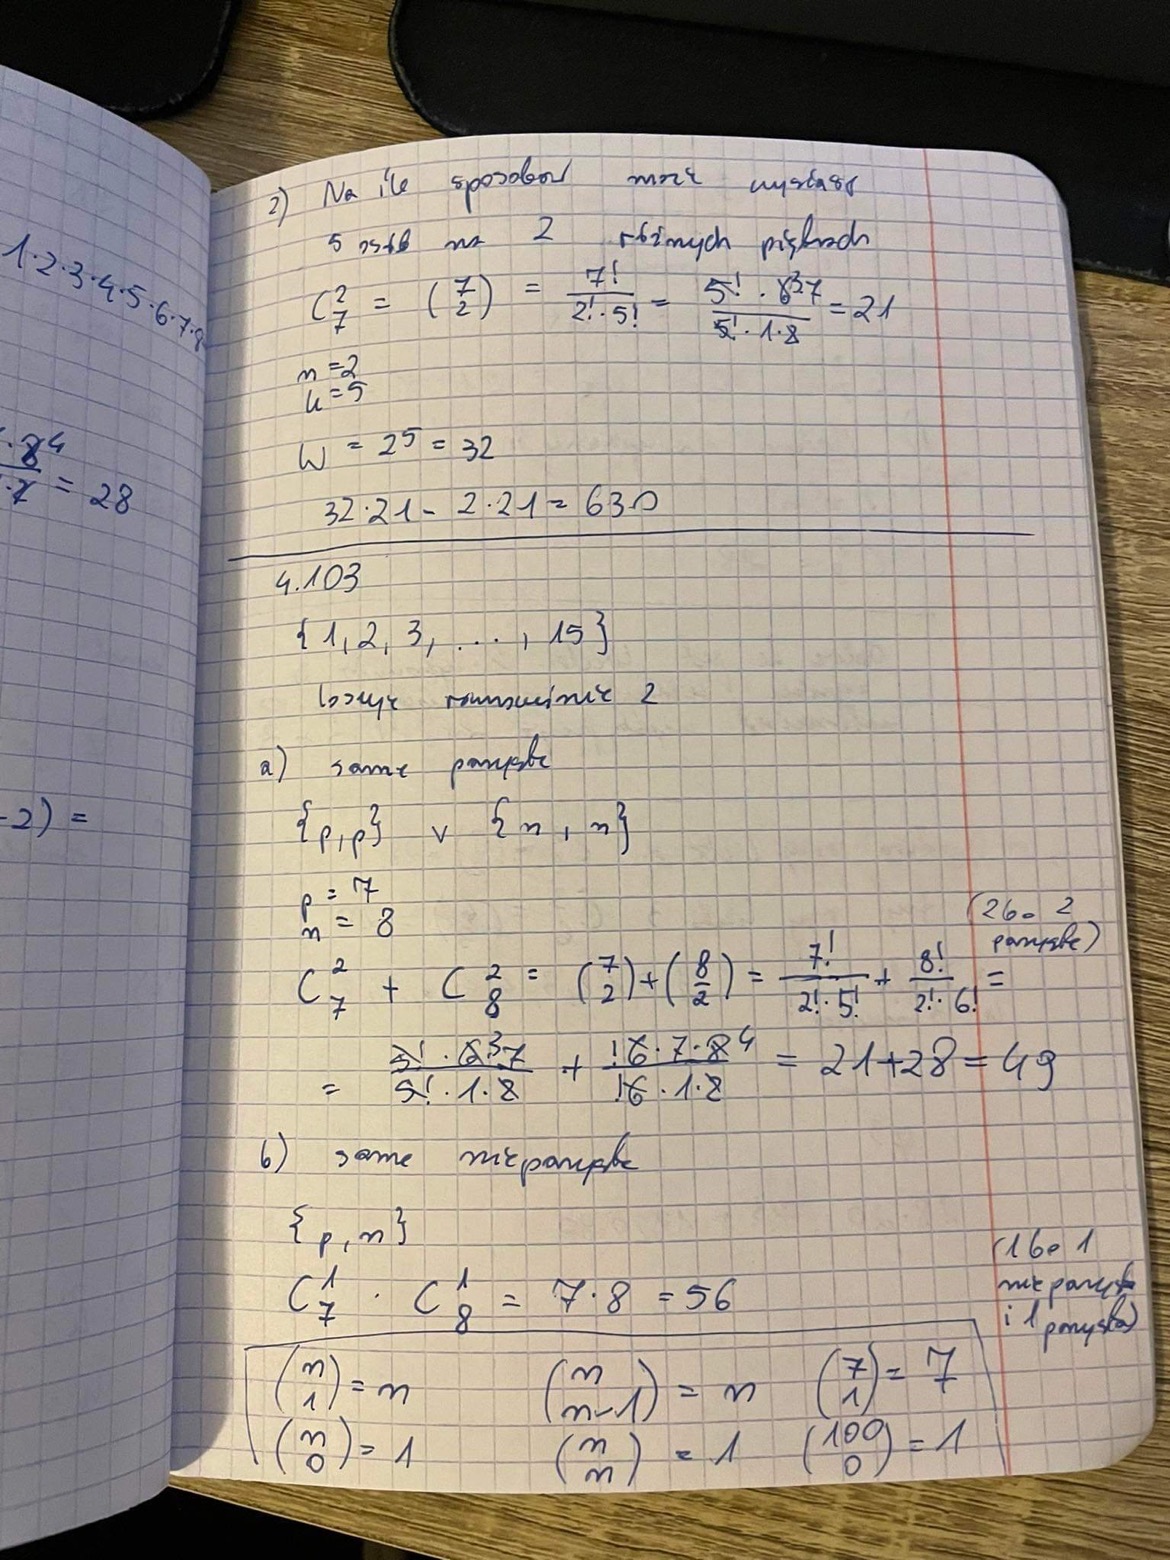 1·2·3·4·5·6·7·8
·8 4
·7 = 28
-2) =
2) Na ile sposobów może wysiąść
5 osób na 2 różnych piętrach
C₇² = (7 2) = 7!/(2!·5!) = (5!·6 3 7)/(5!·1·2) = 21
n = 2
k = 5
W = 2⁵ = 32
32·21 - 2·21 = 630
4.103
{1, 2, 3, ..., 15}
losuje równocześnie 2
a) same parzyste
{p, p} v {n, n}
p = 7
n = 8
(2 bo 2
parzyste)
C₇² + C₈² = (7 2) + (8 2) = 7!/(2!·5!) + 8!/(2!·6!) =
= (5!·6 3 7)/(5!·1·2) + (!6·7·8 4)/(!6·1·2) = 21 + 28 = 49
b) same nieparzyste
{p, n}
(1 bo 1
nieparzysta
i 1 parzysta)
C₇¹ · C₈¹ = 7·8 = 56
(n 1) = n (n n-1) = n (7 1) = 7
(n 0) = 1 (n n) = 1 (100 0) = 1